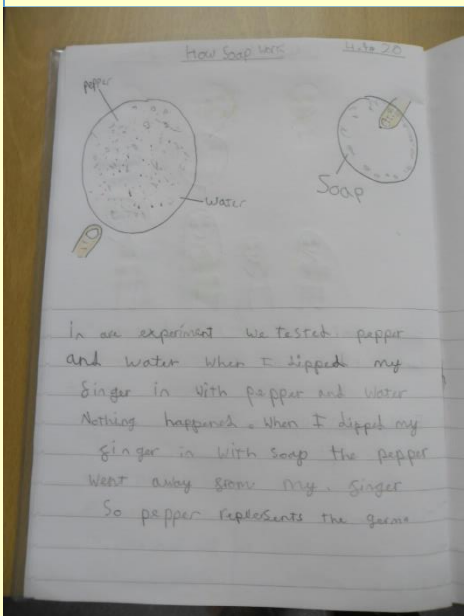 How Soap Work
pepper
Water
Soap
In are experiment we tested pepper
and water when I dipped my
finger in with pepper and water
Nothing happened. When I dipped my
finger in with soap the pepper
went away from my. finger
So pepper represents the germs